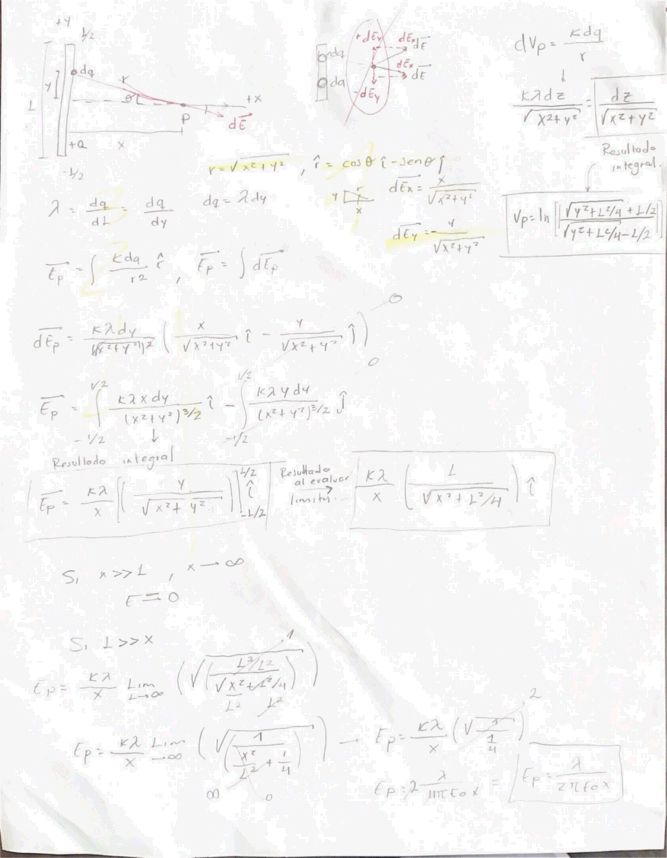 +Y
L/2
dq
y
r
L
θ
+X
P
dE
+Q
x
-L/2
dq
dq
dEy
dEx
dE
dEx
dE
dEy
dVp = Kdq / r
↓
Kλdz / √(x²+y²) = dz / √(x²+y²)
Resultado integral.
Vp = ln [ (√(y²+L²/4) + L/2) / (√(y²+L²/4) - L/2) ]
r = √(x²+y²) , r̂ = cosθ î - senθ ĵ
y r x
dEx = x / √(x²+y²)
dEy = y / √(x²+y²)
λ = dq/dL = dq/dy   dq = λdy
Ep = ∫ Kdq/r² r̂ , Ep = ∫ dEp
dEp = Kλdy / (√(x²+y²))² ( x/√(x²+y²) î - y/√(x²+y²) ĵ ) 0
0
Ep = ∫ L/2 -L/2 Kλxdy / (x²+y²)^3/2 î - ∫ L/2 -L/2 Kλydy / (x²+y²)^3/2 ĵ
↓
Resultado integral
Ep = Kλ/x [ ( y / √(x²+y²) ) ] L/2 -L/2 î
Resultado al evaluar limites →
Kλ/x ( L / √(x²+L²/4) ) î
Si x>>L , x→∞
E = 0
Si L>>x
1
Ep = Kλ/x Lim L→∞ ( √( L²/L² / √(x²+L²/4) ) )
L² L²
Ep = Kλ/x Lim →∞ ( √( 1 / (x²/L² + 1/4) ) ) → Ep = Kλ/x ( √( 1 / 1/4 ) ) 2
∞ 0
Ep = 2 λ / 4πε0x = Ep = λ / 2πε0x